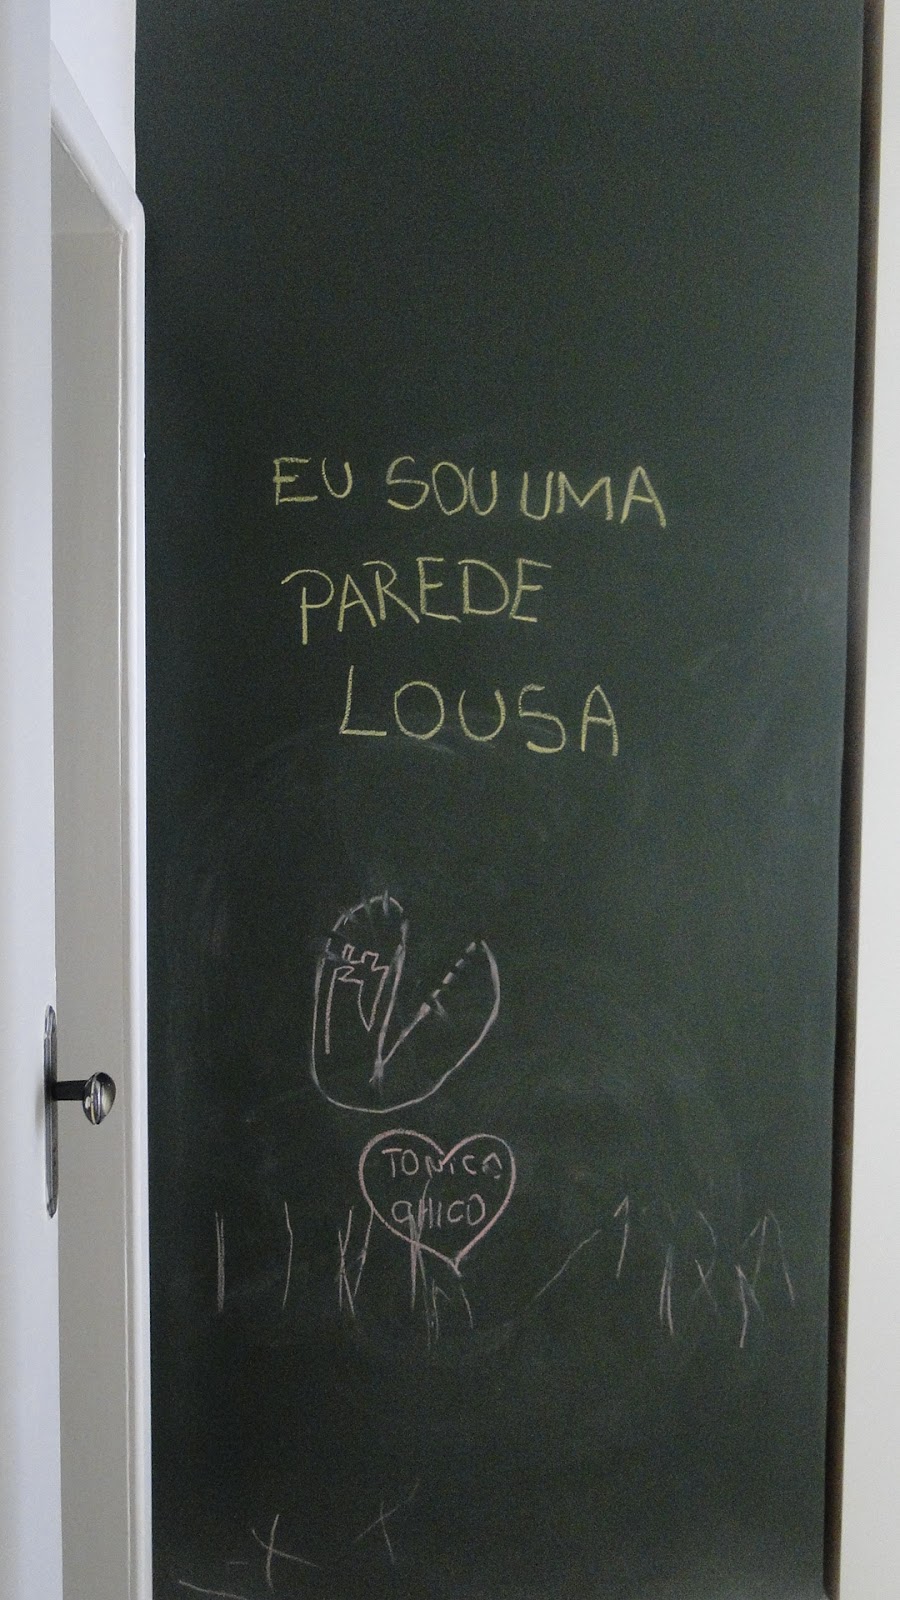 EU SOU UMA
PAREDE
LOUSA
TONICA
CHICO